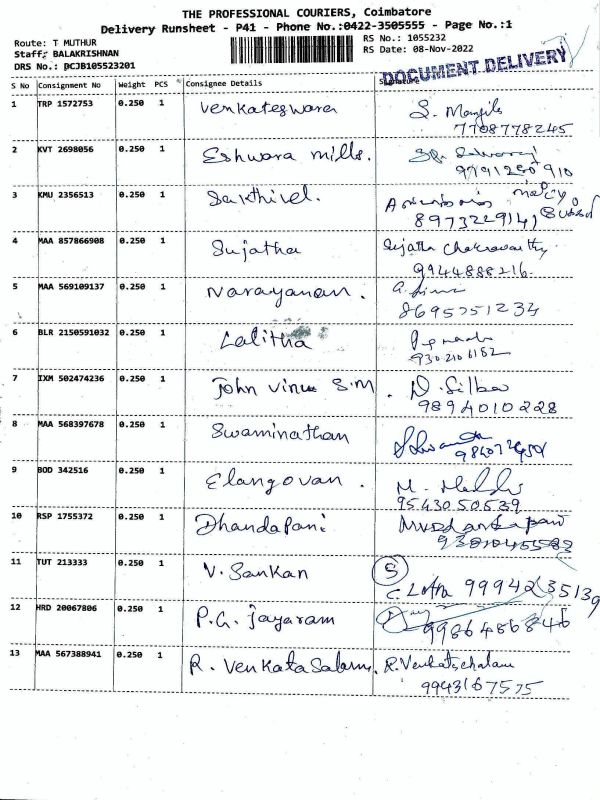 THE PROFESSIONAL COURIERS, Coimbatore
Delivery Runsheet - P41 - Phone No.:0422-3505555 - Page No.:1
Route: T MUTHUR
Staff: BALAKRISHNAN
DRS No.: BCJB105523201
RS No.: 1055232
RS Date: 08-Nov-2022
DOCUMENT DELIVERY
S No Consignment No Weight PCS Consignee Details Signature
1 TRP 1572753 0.250 1 Venkateswara S.
7708778245
2 KVT 2698056 0.250 1 Eshwara mills.
3 KMU 2356513 0.250 1 Sakthivel.
8973229141
4 MAA 857866908 0.250 1 Sujatha Sujatha Chakravarthy
9944888216.
5 MAA 569109137 0.250 1 Narayanan.
8695751234
6 BLR 2150591032 0.250 1 Lalitha
930 210 6152
7 IXM 502474236 0.250 1 John vinu S.M. D. Silba
9894010228
8 MAA 568397678 0.250 1 Swaminathan
9 BOD 342516 0.250 1 Elangovan. M.
9543050539
10 RSP 1755372 0.250 1 Dhandapani
11 TUT 213333 0.250 1 V. Sankan S
C. Latha 9994235139
12 HRD 20067806 0.250 1 P.G. Jayaram
9986486846
13 MAA 567388941 0.250 1 R. Venkatasalam. R. Venkatachalam
9943167575